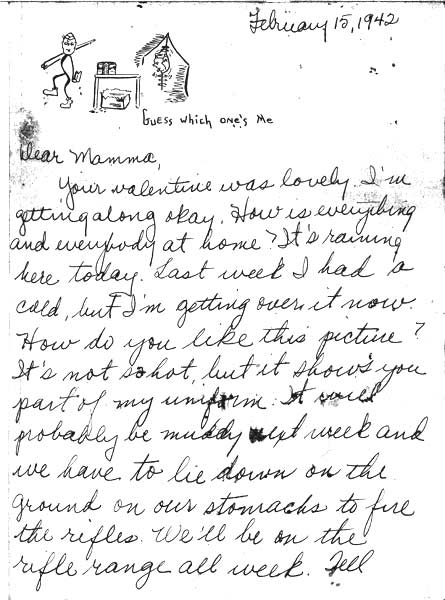 February 15, 1942
Guess which one's Me
Dear Mamma,
Your valentine was lovely. I'm
getting along okay. How is everything
and everybody at home? It's raining
here today. Last week I had a
cold, but I'm getting over it now.
How do you like this picture?
It's not so hot, but it shows you
part of my uniform. It will
probably be muddy next week and
we have to lie down on the
ground on our stomachs to fire
the rifles. We'll be on the
rifle range all week. Tell